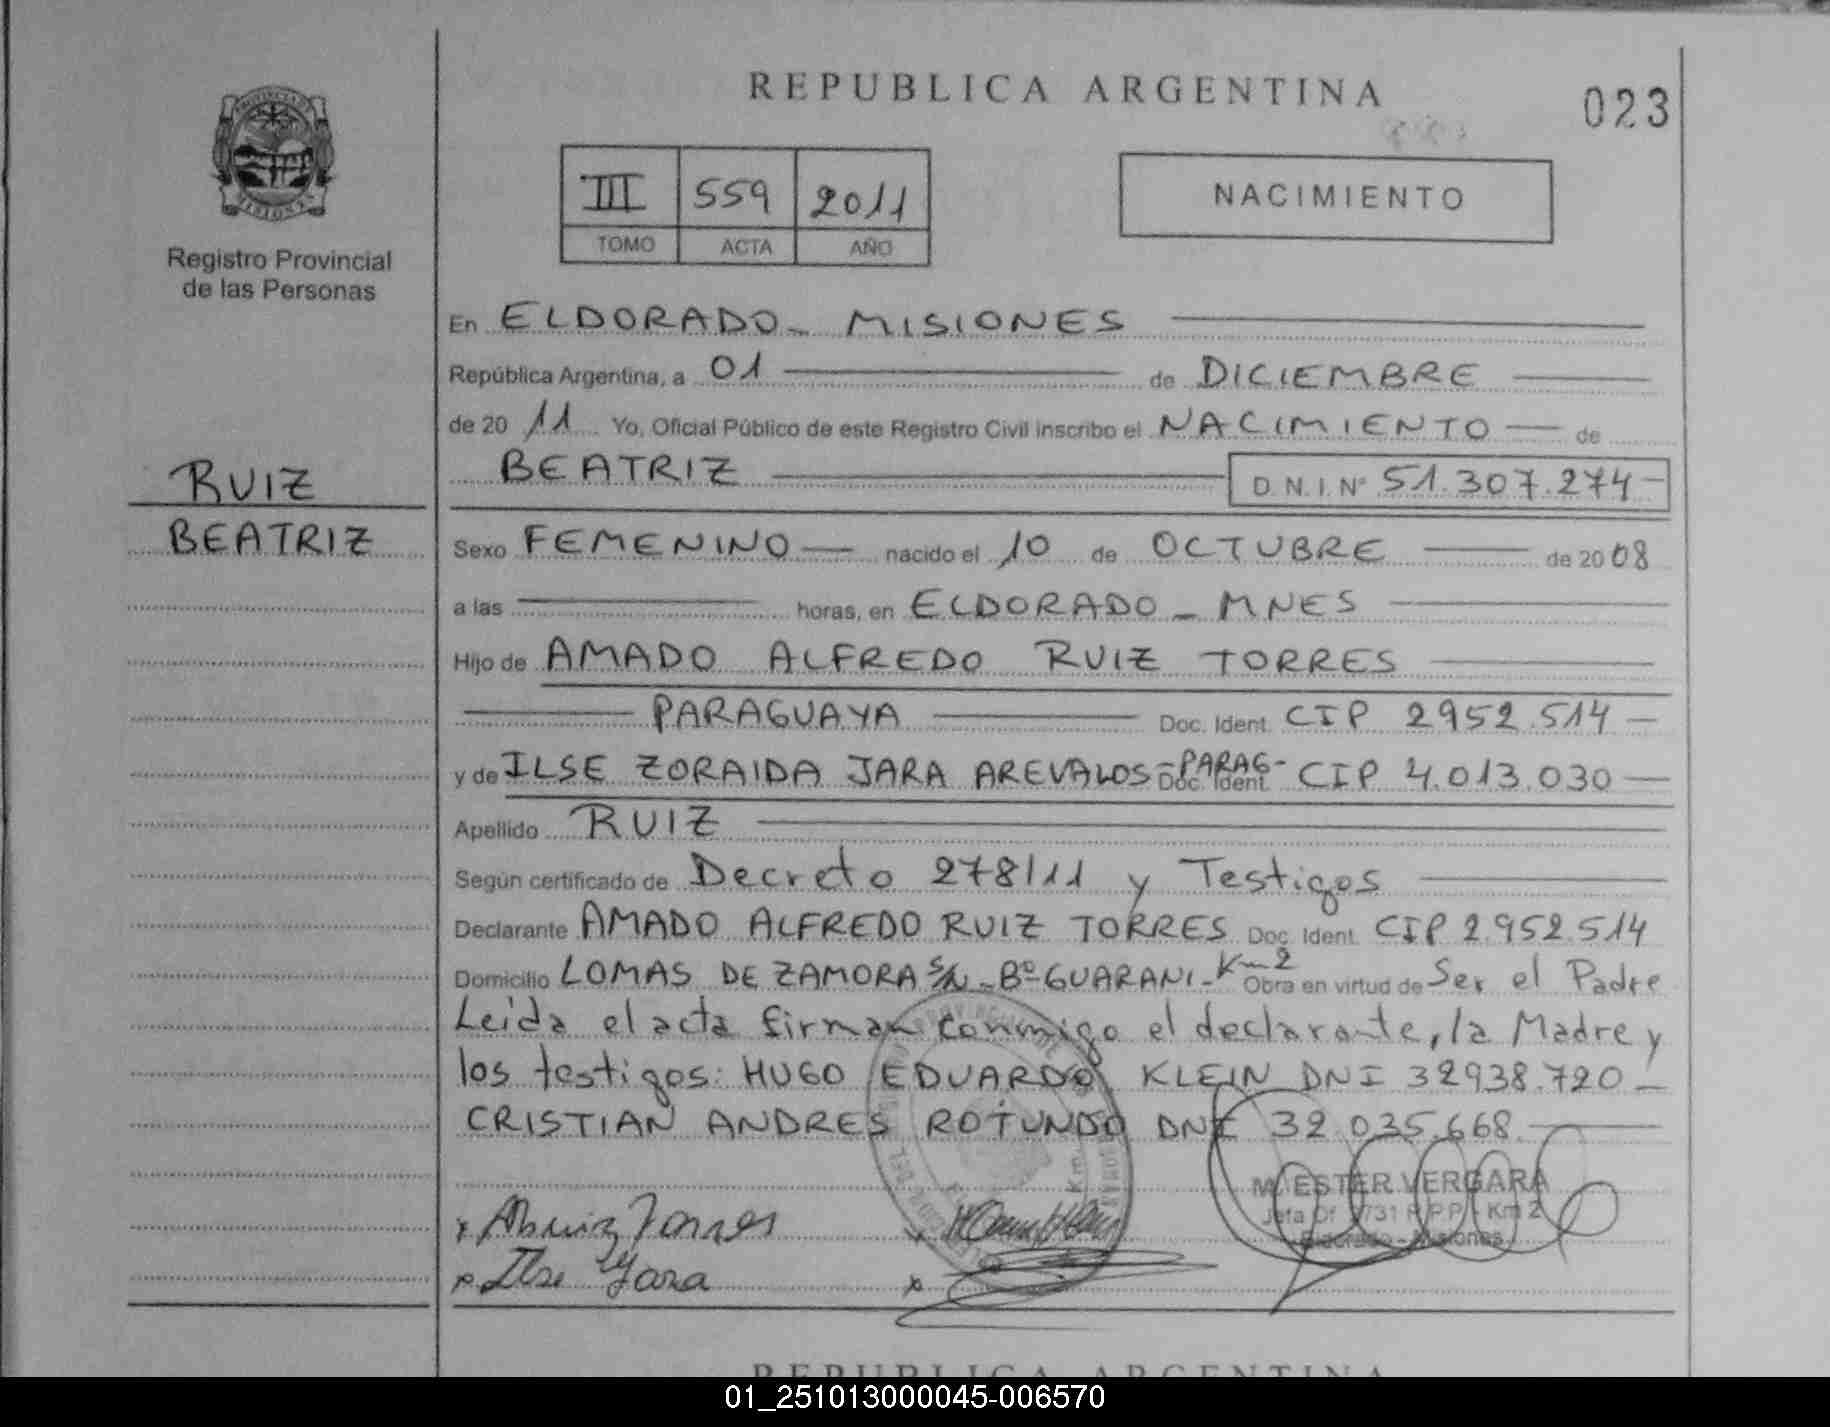 REPUBLICA ARGENTINA
023
III 559 2011
TOMO ACTA AÑO
NACIMIENTO
PROVINCIA D
MISIONES
Registro Provincial
de las Personas
RUIZ
BEATRIZ
En ELDORADO - MISIONES
República Argentina, a 01 de DICIEMBRE
de 20 11 Yo, Oficial Público de este Registro Civil inscribo el NACIMIENTO de
BEATRIZ D.N.I. Nº 51.307.274
Sexo FEMENINO nacido el 10 de OCTUBRE de 2008
a las horas, en ELDORADO - MNES
Hijo de AMADO ALFREDO RUIZ TORRES
PARAGUAYA Doc. Ident. CIP 2952.514
y de ILSE ZORAIDA JARA AREVALOS - PARAG - Doc. Ident. CIP 4.013.030
Apellido RUIZ
Según certificado de Decreto 278/11 y Testigos
Declarante AMADO ALFREDO RUIZ TORRES Doc. Ident. CIP 2.952.514
Domicilio LOMAS DE ZAMORA S/N - Bº GUARANI - Km 2 Obra en virtud de Ser el Padre
Leida el acta firman conmigo el declarante, la Madre y
los testigos: HUGO EDUARDO KLEIN DNI 32938.720
CRISTIAN ANDRES ROTUNDO DNI 32.035.668
M. ESTER VERGARA
Jefa Of. 2731 R.P.P. - Km 2
Eldorado - Misiones
x Ruiz Torres
x Ilse Jara
x
REPUBLICA ARGENTINA
01_251013000045-006570